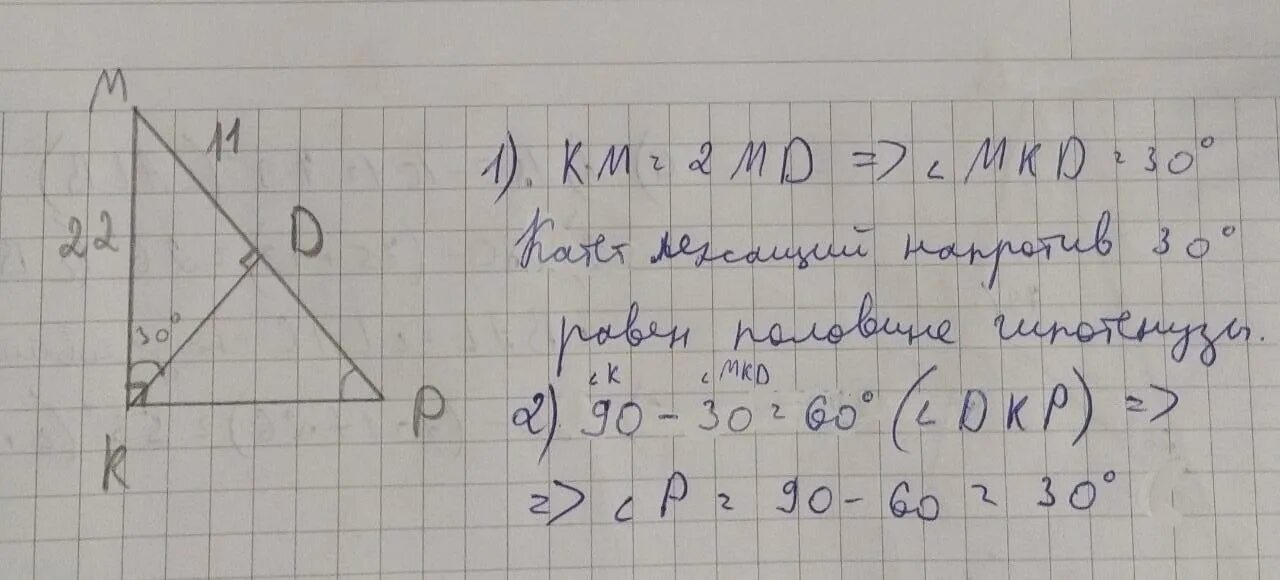 M
11
22
D
30°
K
P
1). KM = 2 MD => ∠ MKD = 30°
Катет лежащий напротив 30°
равен половине гипотенузы.
∠K ∠MKD
2) 90 - 30 = 60° (∠DKP) =>
=> ∠P = 90 - 60 = 30°